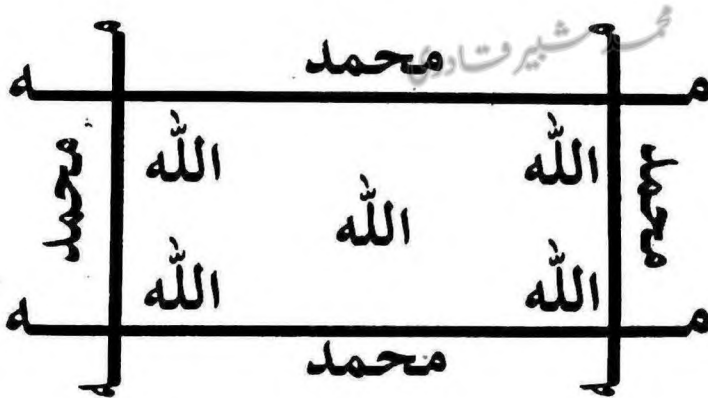 محمد شبیر قادری
محمد
م ه
محمد الله الله محمد
الله
الله الله
م ه
محمد